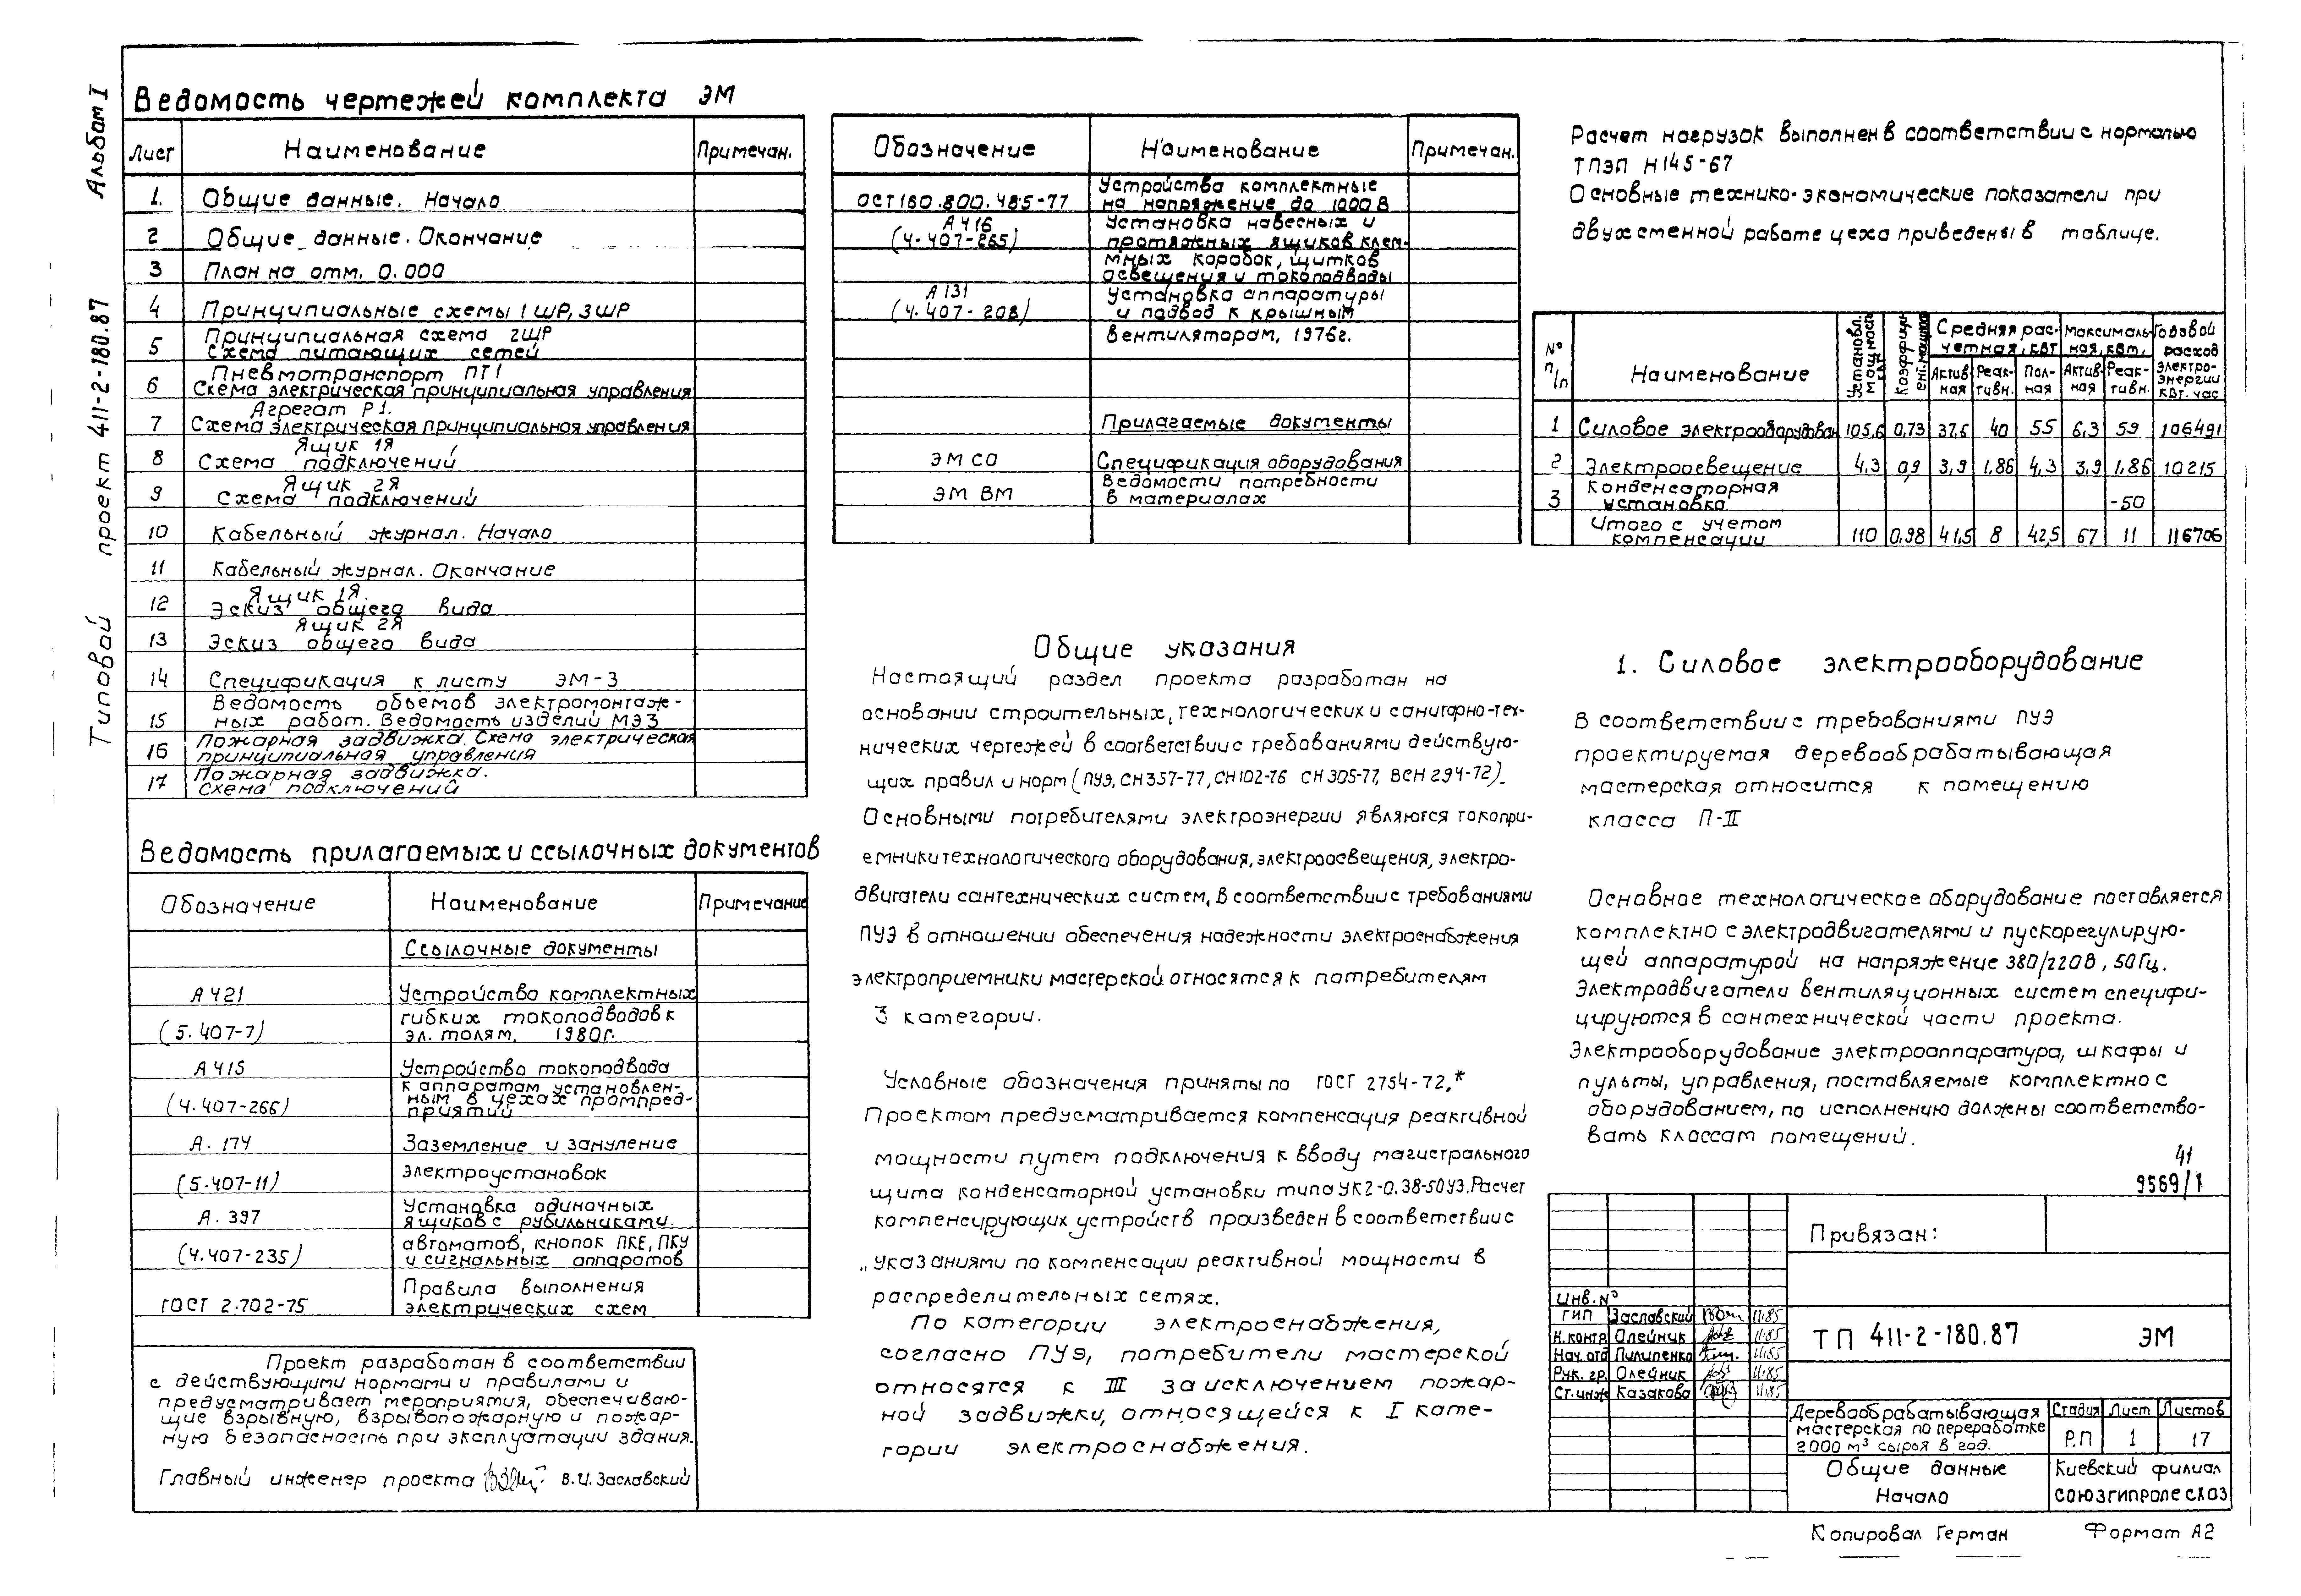 Альбом I
Типовой проект 411-2-180.87
Ведомость чертежей комплекта ЭМ
Лист Наименование Примечан.
1. Общие данные. Начало
2 Общие данные. Окончание
3 План на отм. 0.000
4 Принципиальные схемы 1ШР, 3ШР
5 Принципиальная схема 2ШР
Схема питающих сетей
6 Пневмотранспорт ПТ1
Схема электрическая принципиальная управления
7 Агрегат Р1.
Схема электрическая принципиальная управления
8 Ящик 1Я
Схема подключений
9 Ящик 2Я
Схема подключений
10 Кабельный журнал. Начало
11 Кабельный журнал. Окончание
12 Ящик 1Я.
Эскиз общего вида
13 Ящик 2Я
Эскиз общего вида
14 Спецификация к листу ЭМ-3
15 Ведомость объемов электромонтаж-
ных работ. Ведомость изделий МЭЗ
16 Пожарная задвижка. Схема электрическая
принципиальная управления
17 Пожарная задвижка.
Схема подключений
Ведомость прилагаемых и ссылочных документов
Обозначение Наименование Примечание
Ссылочные документы
А421 Устройство комплектных
(5.407-7) гибких токоподводов к
эл. толям, 1980г.
А415 Устройство токоподвода
(4.407-266) к аппаратам установлен-
ным в цехах промпред-
приятий
А. 174 Заземление и зануление
(5.407-11) электроустановок
А. 397 Установка одиночных
ящиков с рубильниками.
(4.407-235) автоматов, кнопок ПКЕ, ПКУ
и сигнальных аппаратов
ГОСТ 2.702-75 Правила выполнения
электрических схем
Проект разработан в соответствии
с действующими нормами и правилами и
предусматривает мероприятия, обеспечиваю-
щие взрывную, взрывопожарную и пожар-
ную безопасность при эксплуатации здания.
Главный инженер проекта В.И. Заславский
Обозначение Наименование Примечан.
ОСТ160.800.485-77 Устройства комплектные
на напряжение до 1000В
А416 Установка навесных и
(4-407-265) протяжных ящиков клем-
мных коробок, щитков
освещения и токоподводы
А131 Установка аппаратуры
(4.407-208) и подвод к крышным
вентиляторам, 1976г.
Прилагаемые документы
ЭМ СО Спецификация оборудования
ЭМ ВМ Ведомости потребности
в материалах
Общие указания
Настоящий раздел проекта разработан на
основании строительных, технологических и санитарно-тех-
нических чертежей в соответствии с требованиями действую-
щих правил и норм (ПУЭ, СН357-77, СН102-76 СН305-77, ВСН 294-72).
Основными потребителями электроэнергии являются токопри-
емники технологического оборудования, электроосвещения, электро-
двигатели сантехнических систем. В соответствии с требованиями
ПУЭ в отношении обеспечения надежности электроснабжения
электроприемники мастерской относятся к потребителям
3 категории.
Условные обозначения приняты по ГОСТ 2754-72.*
Проектом предусматривается компенсация реактивной
мощности путем подключения к вводу магистрального
щита конденсаторной установки типа УК2-0.38-50У3. Расчет
компенсирующих устройств произведен в соответствии с
„Указаниями по компенсации реактивной мощности в
распределительных сетях.
По категории электроснабжения,
согласно ПУЭ, потребители мастерской
относятся к III за исключением пожар-
ной задвижки, относящейся к I кате-
гории электроснабжения.
Расчет нагрузок выполнен в соответствии с нормалью
ТПЭП Н145-67
Основные технико-экономические показатели при
двухсменной работе цеха приведены в таблице.
№ п/п Наименование Установл. мощность Коэффициент мощности Средняя рас-четная, квт Максималь-ная, квт. Годовой расход электро-энергии квт. час
Актив-ная Реак-тивн. Пол-ная Актив-ная Реак-тивн.
1 Силовое электрооборудован 105,6 0,73 37,6 40 55 6,3 59 106491
2 Электроосвещение 4,3 0,9 3,9 1,86 4,3 3,9 1,86 10215
3 Конденсаторная установка -50
Итого с учетом компенсации 110 0,98 41,5 8 42,5 67 11 116706
1. Силовое электрооборудование
В соответствии с требованиями ПУЭ
проектируемая деревообрабатывающая
мастерская относится к помещению
класса П-II
Основное технологическое оборудование поставляется
комплектно с электродвигателями и пускорегулирую-
щей аппаратурой на напряжение 380/220В, 50Гц.
Электродвигатели вентиляционных систем специфи-
цируются в сантехнической части проекта.
Электрооборудование электроаппаратура, шкафы и
пульты, управления, поставляемые комплектно с
оборудованием, по исполнению должны соответство-
вать классам помещений.
41
9569/1
Привязан:
Инв. №
ГИП Заславский 11.85
Н.контр. Олейник 11.85
Нач. отд Пилипенко 11.85
Рук. гр. Олейник 11.85
Ст. инж Казакова 11.85
ТП 411-2-180.87 ЭМ
Деревообрабатывающая
мастерская по переработке
2000 м³ сырья в год.
Стадия Лист Листов
Р.П 1 17
Общие данные
Начало
Киевский филиал
СОЮЗГИПРОЛЕСХОЗ
Копировал Герман Формат А2